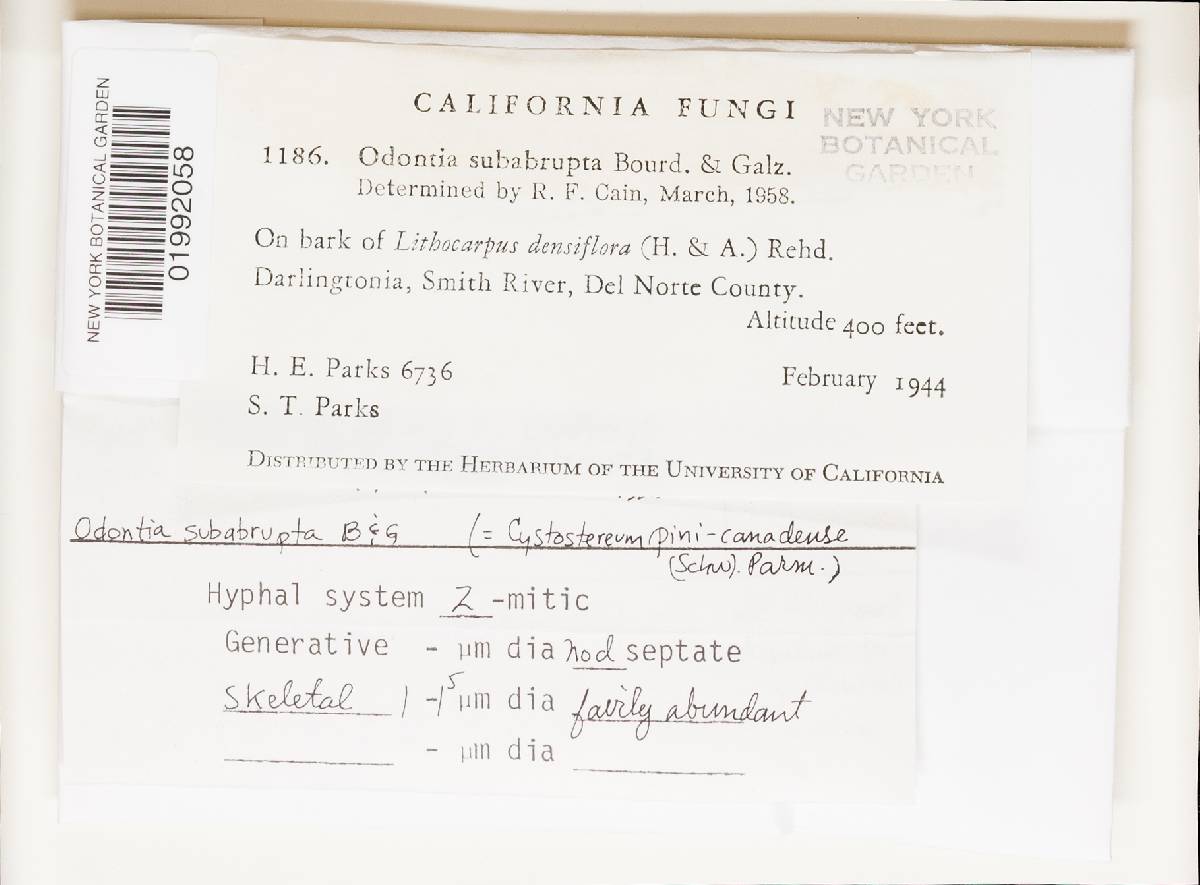 NEW YORK BOTANICAL GARDEN
01992058
CALIFORNIA FUNGI
NEW YORK
BOTANICAL
GARDEN
1186. Odontia subabrupta Bourd. & Galz.
Determined by R. F. Cain, March, 1958.
On bark of Lithocarpus densiflora (H. & A.) Rehd.
Darlingtonia, Smith River, Del Norte County.
Altitude 400 feet.
H. E. Parks 6736 February 1944
S. T. Parks
DISTRIBUTED BY THE HERBARIUM OF THE UNIVERSITY OF CALIFORNIA
Odontia subabrupta B & G (= Cystostereum pini-canadense
(Schw). Parm.)
Hyphal system 2 -mitic
Generative - µm dia nod septate
Skeletal 1 -1.5 µm dia fairly abundant
- µm dia